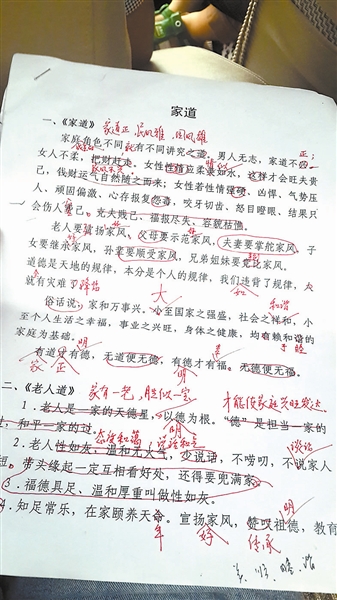 家道
一、《家道》 家道正
家庭角色不同，就有不同讲究之道。男人无志，家道不
女人不柔，把财赶走。女性性情应柔柔如水，这样才会旺夫贵
己，钱财运气自然随之而来；女性若性情强硬，凶悍、气势压
人、顽固偏激、心存报复怨毒，咬牙切齿、怒目瞪眼、结果只
会伤人害己。克夫贱己、福报尽失、容貌枯憔。
老人要宣扬家风，父母要示范家风，夫妻要掌舵家风，子
女要继承家风，孙辈要顺受家风，兄弟姐妹要竞比家风。
道德是天地的规律，本分是个人的规律，我们违背了规律，
就有灾难
大 和 和谐
俗话说：家和万事兴。小至国家之强盛，社会之祥和，小
至个人生活之幸福，事业之兴旺，身体之健康，均有赖和谐的
家庭为基础。
有道才有德，无道便无德，有德才有福。无德便无福。
家 正 明
二、《老人道》 家有一老，胜似一宝
1．老人是一家的天德星，以德为根。“德”是担当一家的
过，和平一家的过。
2．老人性如灰，温和无火气，少说话，不唠叨，不说家人
短。带头缘起一定互相看好处，还得要兜满家。
3．福德具足、温和厚重叫做性如灰。
4．知足常乐，在家颐养天命。宣扬家风，赞叹祖德，教育
年 传承